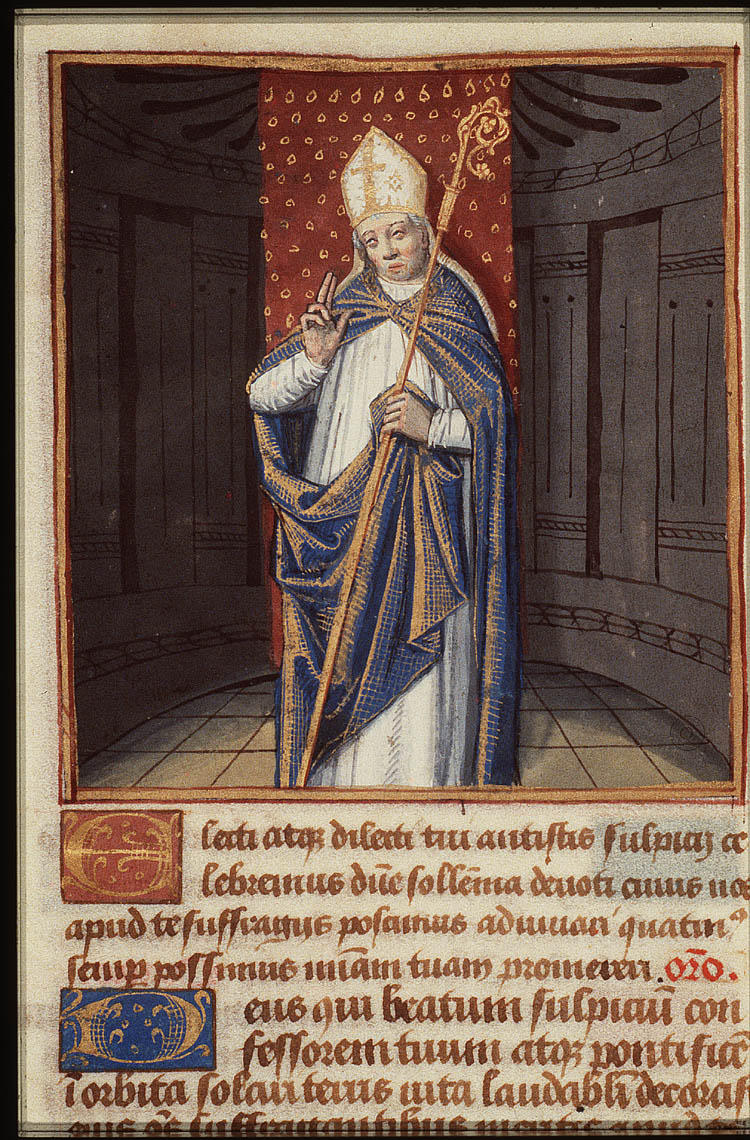 Electi atqꝫ dilecti tui antistis sulpicij ce
lebremus dn̄e sollēnia devoti cuius nos
apud te suffragijs poscimus adiuuari quatin9
semp possimus miam̄ tuam promereri. or̄o.
Deus qui beatum sulpiciū con
fessorem tuum atqꝫ pontificē
ī orbita solari terris uita laudabli decoras